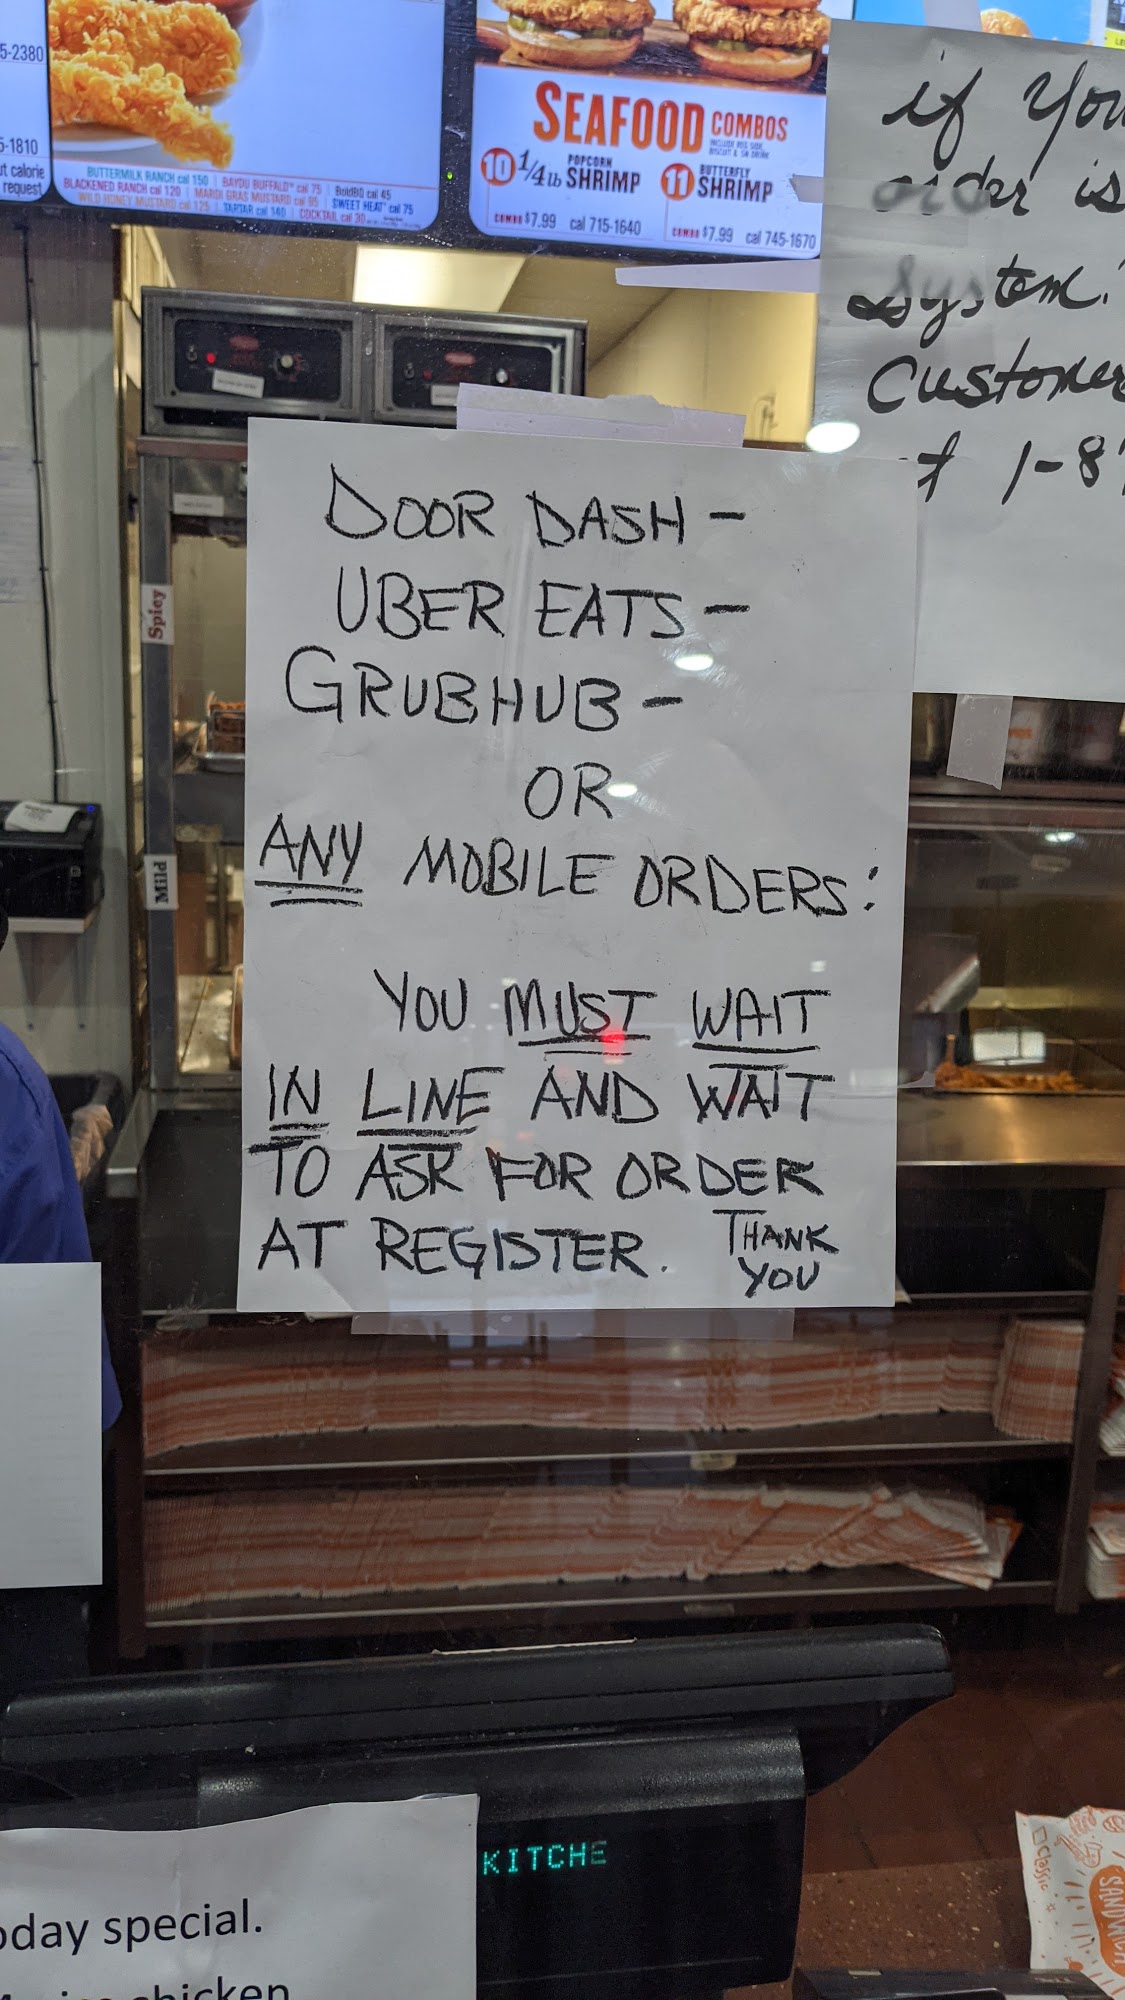 5-2380
5-1810
ut calorie
request
BUTTERMILK RANCH cal 150 | BAYOU BUFFALO™ cal 75 | BoldBQ cal 45
BLACKENED RANCH cal 120 | MARDI GRAS MUSTARD cal 95 | SWEET HEAT™ cal 75
WILD HONEY MUSTARD cal 125 | TARTAR cal 140 | COCKTAIL cal 30
SEAFOOD COMBOS
10 1/4 lb POPCORN SHRIMP
COMBO $7.99 cal 715-1640
11 BUTTERFLY SHRIMP
COMBO $7.99 cal 745-1670
if You
order is
System.
Customer
1-8
Spicy
Mild
DOOR DASH -
UBER EATS -
GRUBHUB -
OR
ANY MOBILE ORDERS:
YOU MUST WAIT
IN LINE AND WAIT
TO ASK FOR ORDER
AT REGISTER. THANK
YOU
KITCHE
oday special.
chicken
Classic
SANDWICH